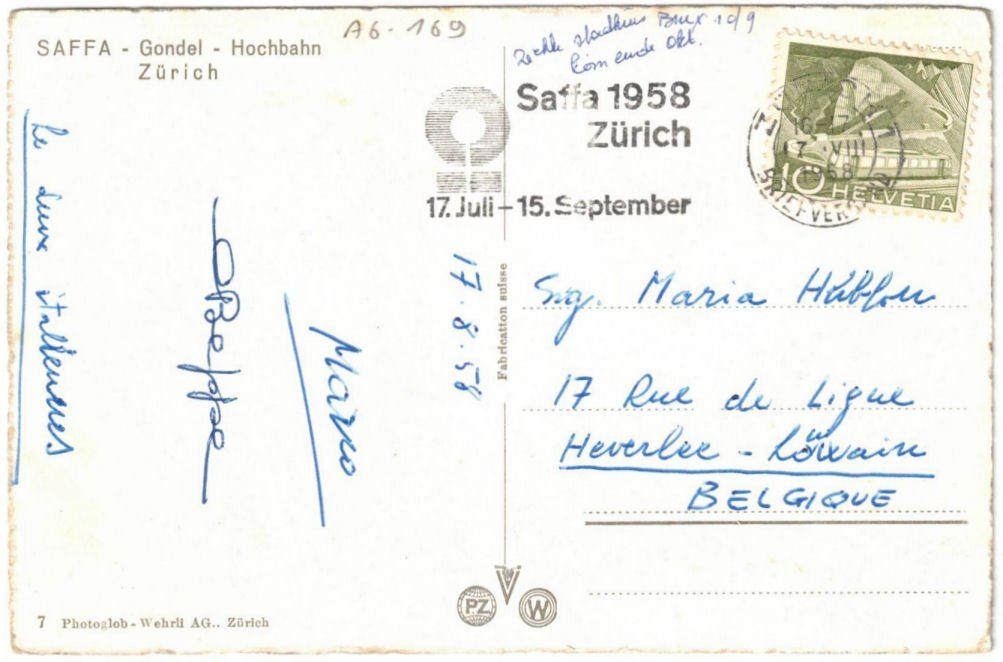 SAFFA - Gondel - Hochbahn
Zürich
A6-169
10/9
Okt.
Saffa 1958
Zürich
17. Juli - 15. September
17. VIII
1958
BRIEFVERS
10 HELVETIA
Le deux italienes
Beppe
Marco
17.8.58
Fabrication suisse
Sig. Maria
17 Rue de Ligne
Heverlee - Löwain
BELGIQUE
PZ
W
7 Photoglob-Wehrli AG., Zürich